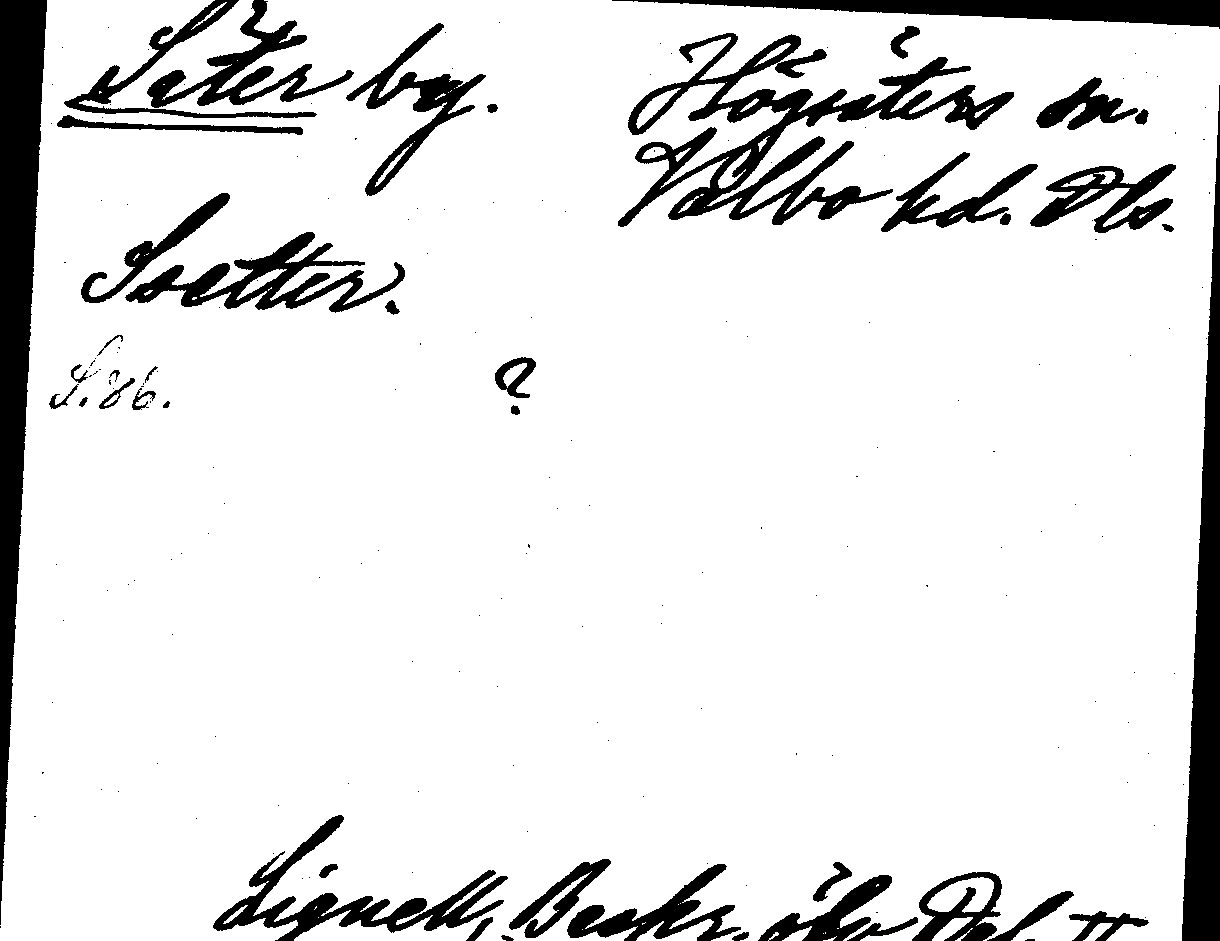 Säter by.
Högsäters sn.
Valbo hd. Dls.
Ssætter.
S. 86.
?
Lignell, Beskr. öfv. Dal. II